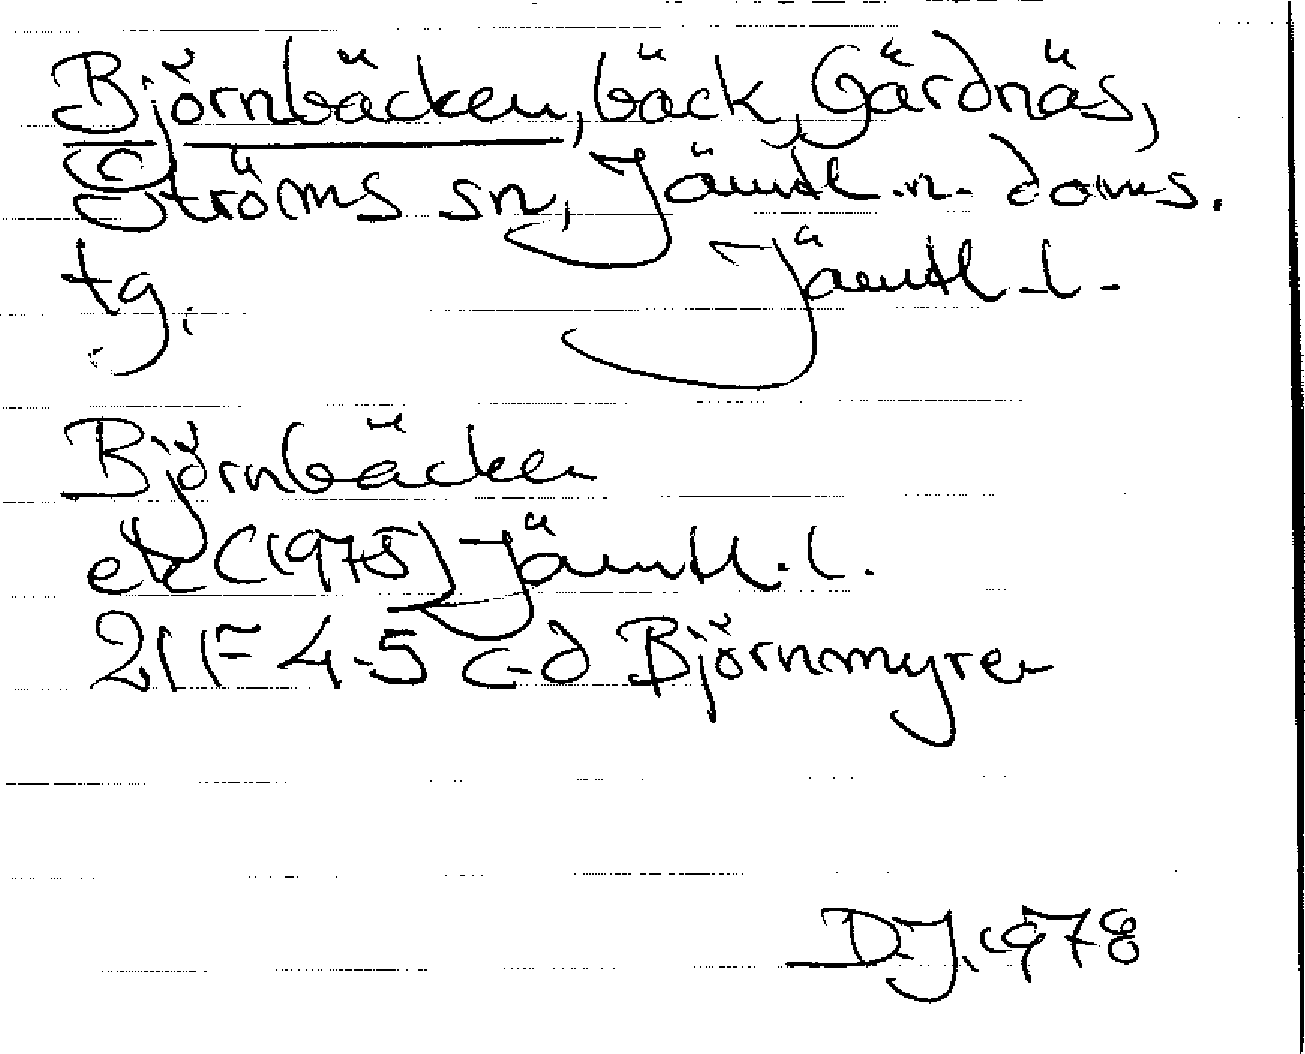 Björnbäcken, bäck, Gärdnäs,
Ströms sn, Jämtl. n. doms.
tg. Jämtl. l.
Björnbäcken
ek (1975) Jämtl. l.
21F 4-5 c-d Björnmyren
D.J. 1978